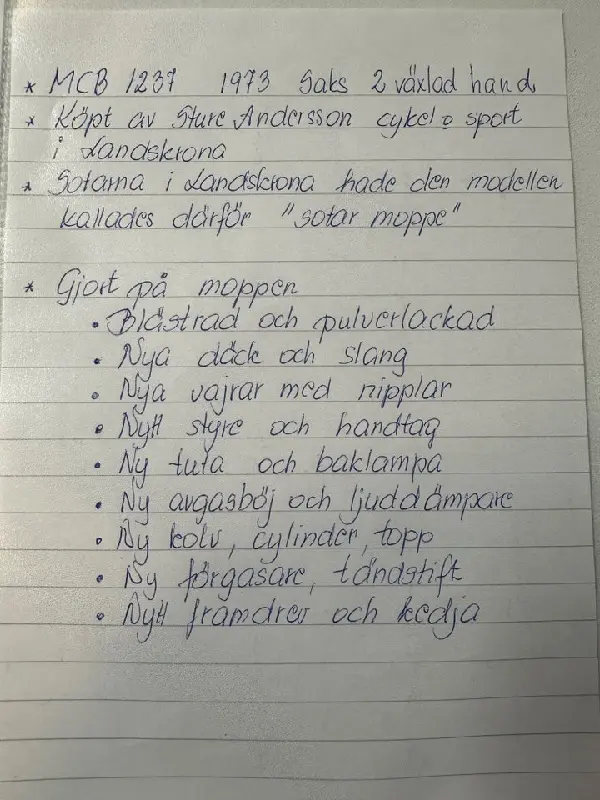 * MCB 1237 1973 Saks 2 växlad hand
* Köpt av Sture Andersson cykel o sport
i Landskrona
* Sotarna i Landskrona hade den modellen
kallades därför "sotar moppe"
* Gjort på moppen
• Blästrad och pulverlackad
• Nya däck och slang
• Nya vajrar med nipplar
• Nytt styre och handtag
• Ny tuta och baklampa
• Ny avgasböj och ljuddämpare
• Ny kolv, cylinder, topp
• Ny förgasare, tändstift
• Nytt framdrev och kedja